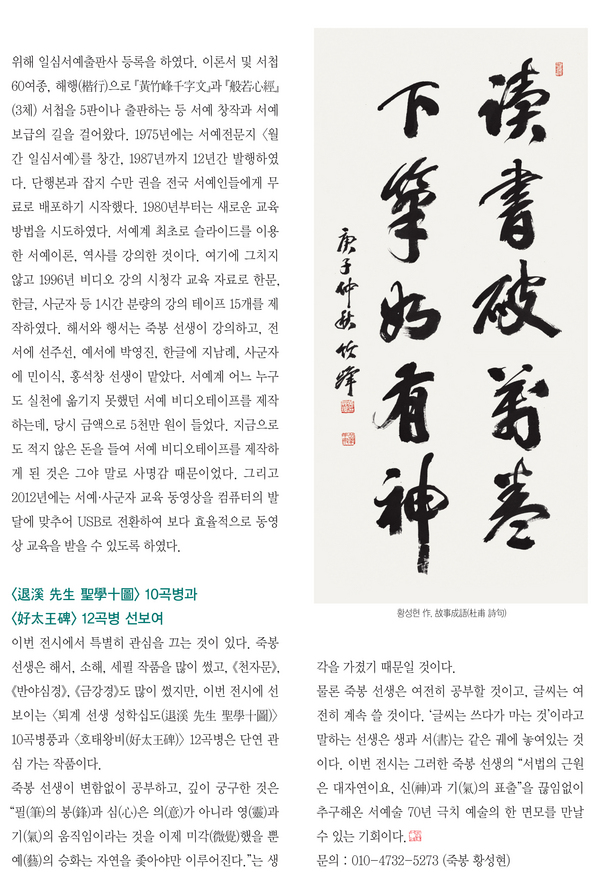 위해 일심서예출판사 등록을 하였다. 이론서 및 서첩
60여종, 해행(楷行)으로 『黃竹峰千字文』과 『般若心經』
(3체) 서첩을 5판이나 출판하는 등 서예 창작과 서예
보급의 길을 걸어왔다. 1975년에는 서예전문지 〈월
간 일심서예〉를 창간, 1987년까지 12년간 발행하였
다. 단행본과 잡지 수만 권을 전국 서예인들에게 무
료로 배포하기 시작했다. 1980년부터는 새로운 교육
방법을 시도하였다. 서예계 최초로 슬라이드를 이용
한 서예이론, 역사를 강의한 것이다. 여기에 그치지
않고 1996년 비디오 강의 시청각 교육 자료로 한문,
한글, 사군자 등 1시간 분량의 강의 테이프 15개를 제
작하였다. 해서와 행서는 죽봉 선생이 강의하고, 전
서에 선주선, 예서에 박영진, 한글에 지남례, 사군자
에 민이식, 홍석창 선생이 맡았다. 서예계 어느 누구
도 실천에 옮기지 못했던 서예 비디오테이프를 제작
하는데, 당시 금액으로 5천만 원이 들었다. 지금으로
도 적지 않은 돈을 들여 서예 비디오테이프를 제작하
게 된 것은 그야 말로 사명감 때문이었다. 그리고
2012년에는 서예·사군자 교육 동영상을 컴퓨터의 발
달에 맞추어 USB로 전환하여 보다 효율적으로 동영
상 교육을 받을 수 있도록 하였다.
〈退溪 先生 聖學十圖〉 10곡병과
〈好太王碑〉 12곡병 선보여
이번 전시에서 특별히 관심을 끄는 것이 있다. 죽봉
선생은 해서, 소해, 세필 작품을 많이 썼고, 《천자문》,
《반야심경》, 《금강경》도 많이 썼지만, 이번 전시에 선
보이는 〈퇴계 선생 성학십도(退溪 先生 聖學十圖)〉
10곡병풍과 〈호태왕비(好太王碑)〉 12곡병은 단연 관
심 가는 작품이다.
죽봉 선생이 변함없이 공부하고, 깊이 궁구한 것은
“필(筆)의 봉(鋒)과 심(心)은 의(意)가 아니라 영(靈)과
기(氣)의 움직임이라는 것을 이제 미각(微覺)했을 뿐
예(藝)의 승화는 자연을 좇아야만 이루어진다.”는 생
读書破萬卷
下筆如有神
庚子仲秋 竹峰
황성현 作. 故事成語(杜甫 詩句)
각을 가졌기 때문일 것이다.
물론 죽봉 선생은 여전히 공부할 것이고, 글씨는 여
전히 계속 쓸 것이다. ‘글씨는 쓰다가 마는 것’이라고
말하는 선생은 생과 서(書)는 같은 궤에 놓여있는 것
이다. 이번 전시는 그러한 죽봉 선생의 “서법의 근원
은 대자연이요, 신(神)과 기(氣)의 표출”을 끊임없이
추구해온 서예술 70년 극치 예술의 한 면모를 만날
수 있는 기회이다.
문의 : 010-4732-5273 (죽봉 황성현)